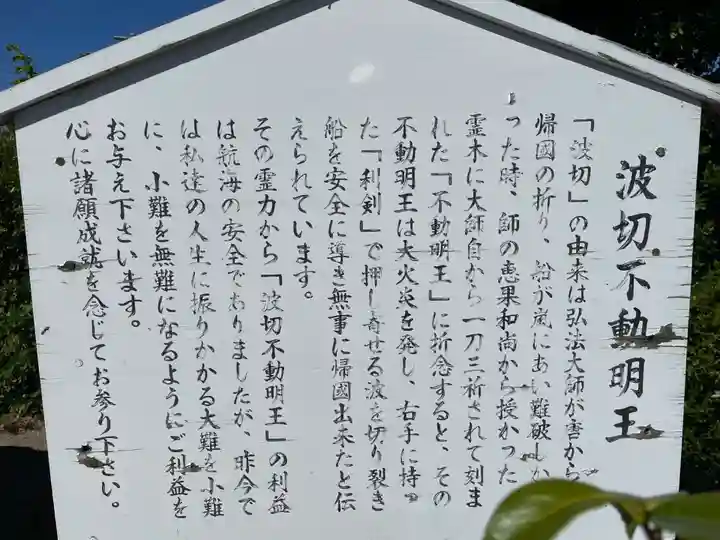 波切不動明王
「波切」の由来は弘法大師が唐から
帰國の折り、船が嵐にあい難破しか
った時、師の恵果和尚から授かった
霊木に大師自から一刀三祈されて刻ま
れた「不動明王」に祈念すると、その
不動明王は大火炎を発し、右手に持っ
た「利剣」で押し寄せる波を切り裂き
船を安全に導き無事に帰國出来たと伝
えられています。
その霊力から「波切不動明王」の利益
は航海の安全でありましたが、昨今で
は私達の人生に振りかかる大難を小難
に、小難を無難になるようにご利益を
お与え下さいます。
心に諸願成就を念じてお参り下さい。